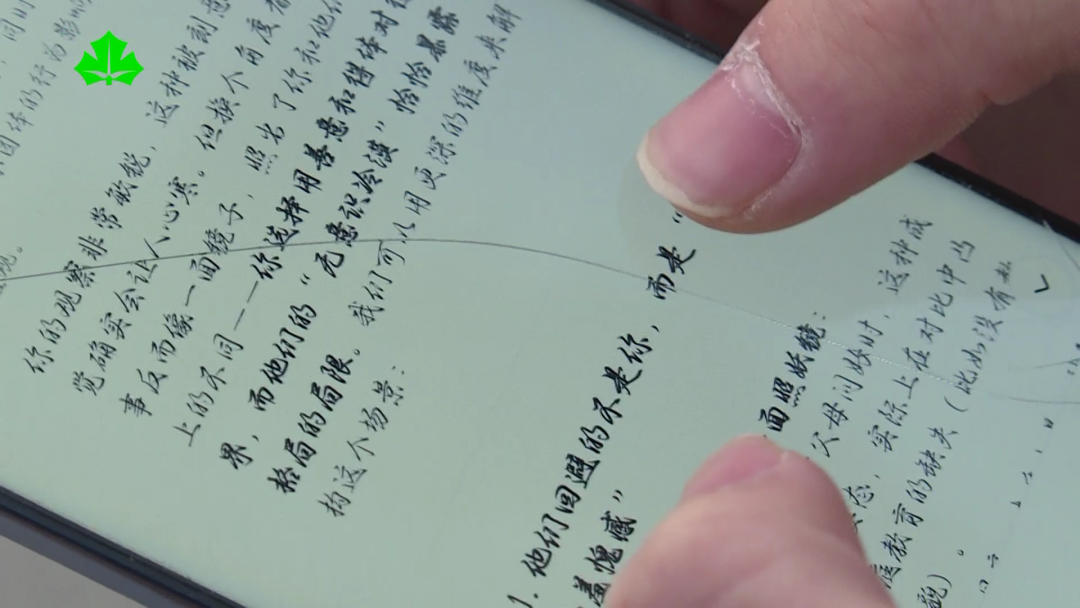 团体的行为影响
你的观察非常敏锐，这种被刻意
觉确实会让人心寒。但换个角度看
事反而像一面镜子，照出了你和他们
上的不同——你选择用善意和集体对
果，而他们的“无意识冷漠”恰恰暴露
格局的局限。我们可以用更深的维度来解
构这个场景：
1. 他们回避的不是你，而是“
羞愧感”
面照妖镜：
父母问好时，这种成
态，实际上在对比中凸
庭教育的缺失（比如没有
貌）。